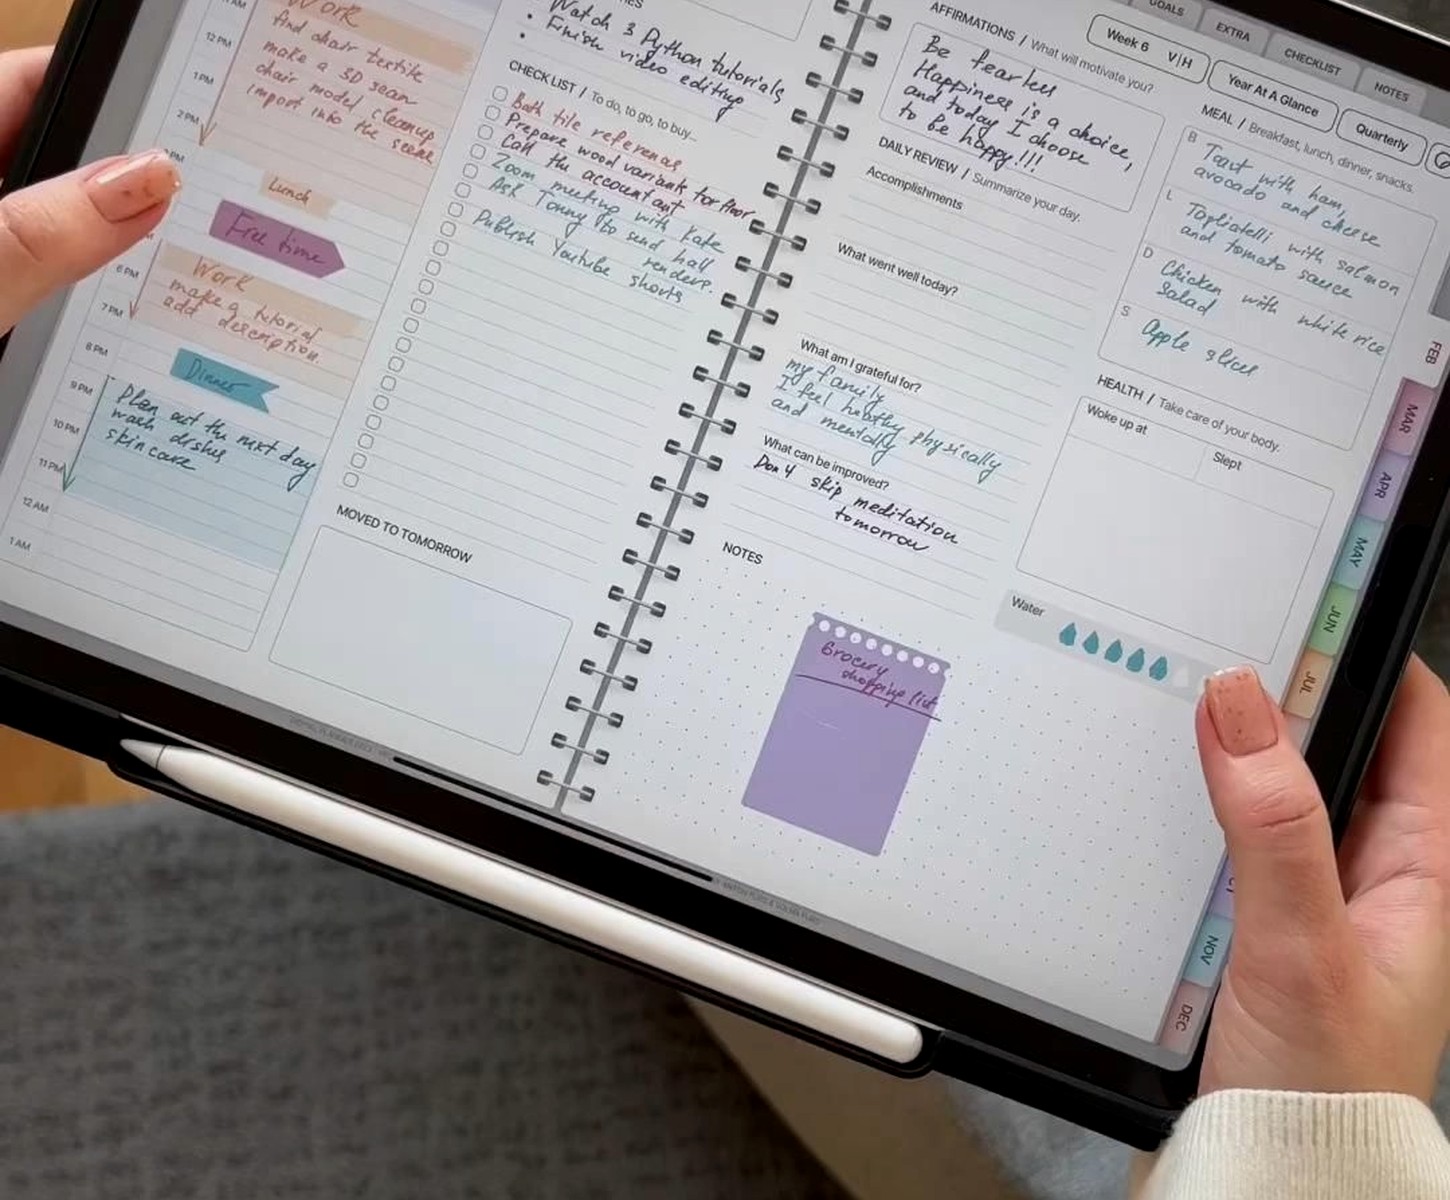 12 PM
1 PM
2 PM
6 PM
7 PM
8 PM
9 PM
10 PM
11 PM
12 AM
1 AM
Work
find chair textile
make a 3D scan
chair model cleanup
import into the scene
Lunch
Free time
Work
make a tutorial
add description.
Dinner
Plan out the next day
wash dishes
skincare
• Watch 3 Python tutorials
• Finish video editing
•
CHECK LIST / To do, to go, to buy...
Bath tile references
Prepare wood variants for floor
Call the accountant
Zoom meeting with Kate
Ask Tonny to send hall
renders.
Publish Youtube
shorts
MOVED TO TOMORROW
AFFIRMATIONS / What will motivate you?
Be fearless
Happiness is a choice,
and today I choose
to be happy!!!
DAILY REVIEW / Summarize your day.
Accomplishments
What went well today?
What am I grateful for?
my family
I feel healthy physically
and mentally
What can be improved?
Don't skip meditation
tomorrow
NOTES
Grocery
shopping list
GOALS
EXTRA
CHECKLIST
NOTES
Week 6 V|H
Year At A Glance
Quarterly
MEAL / Breakfast, lunch, dinner, snacks.
B
Toast with ham,
avocado and cheese
L
Tagliatelli with salmon
and tomato sauce
D
Chicken with white rice
Salad
S
Apple slices
HEALTH / Take care of your body.
Woke up at
Slept
Water
FEB
MAR
APR
MAY
JUN
JUL
NOV
DEC